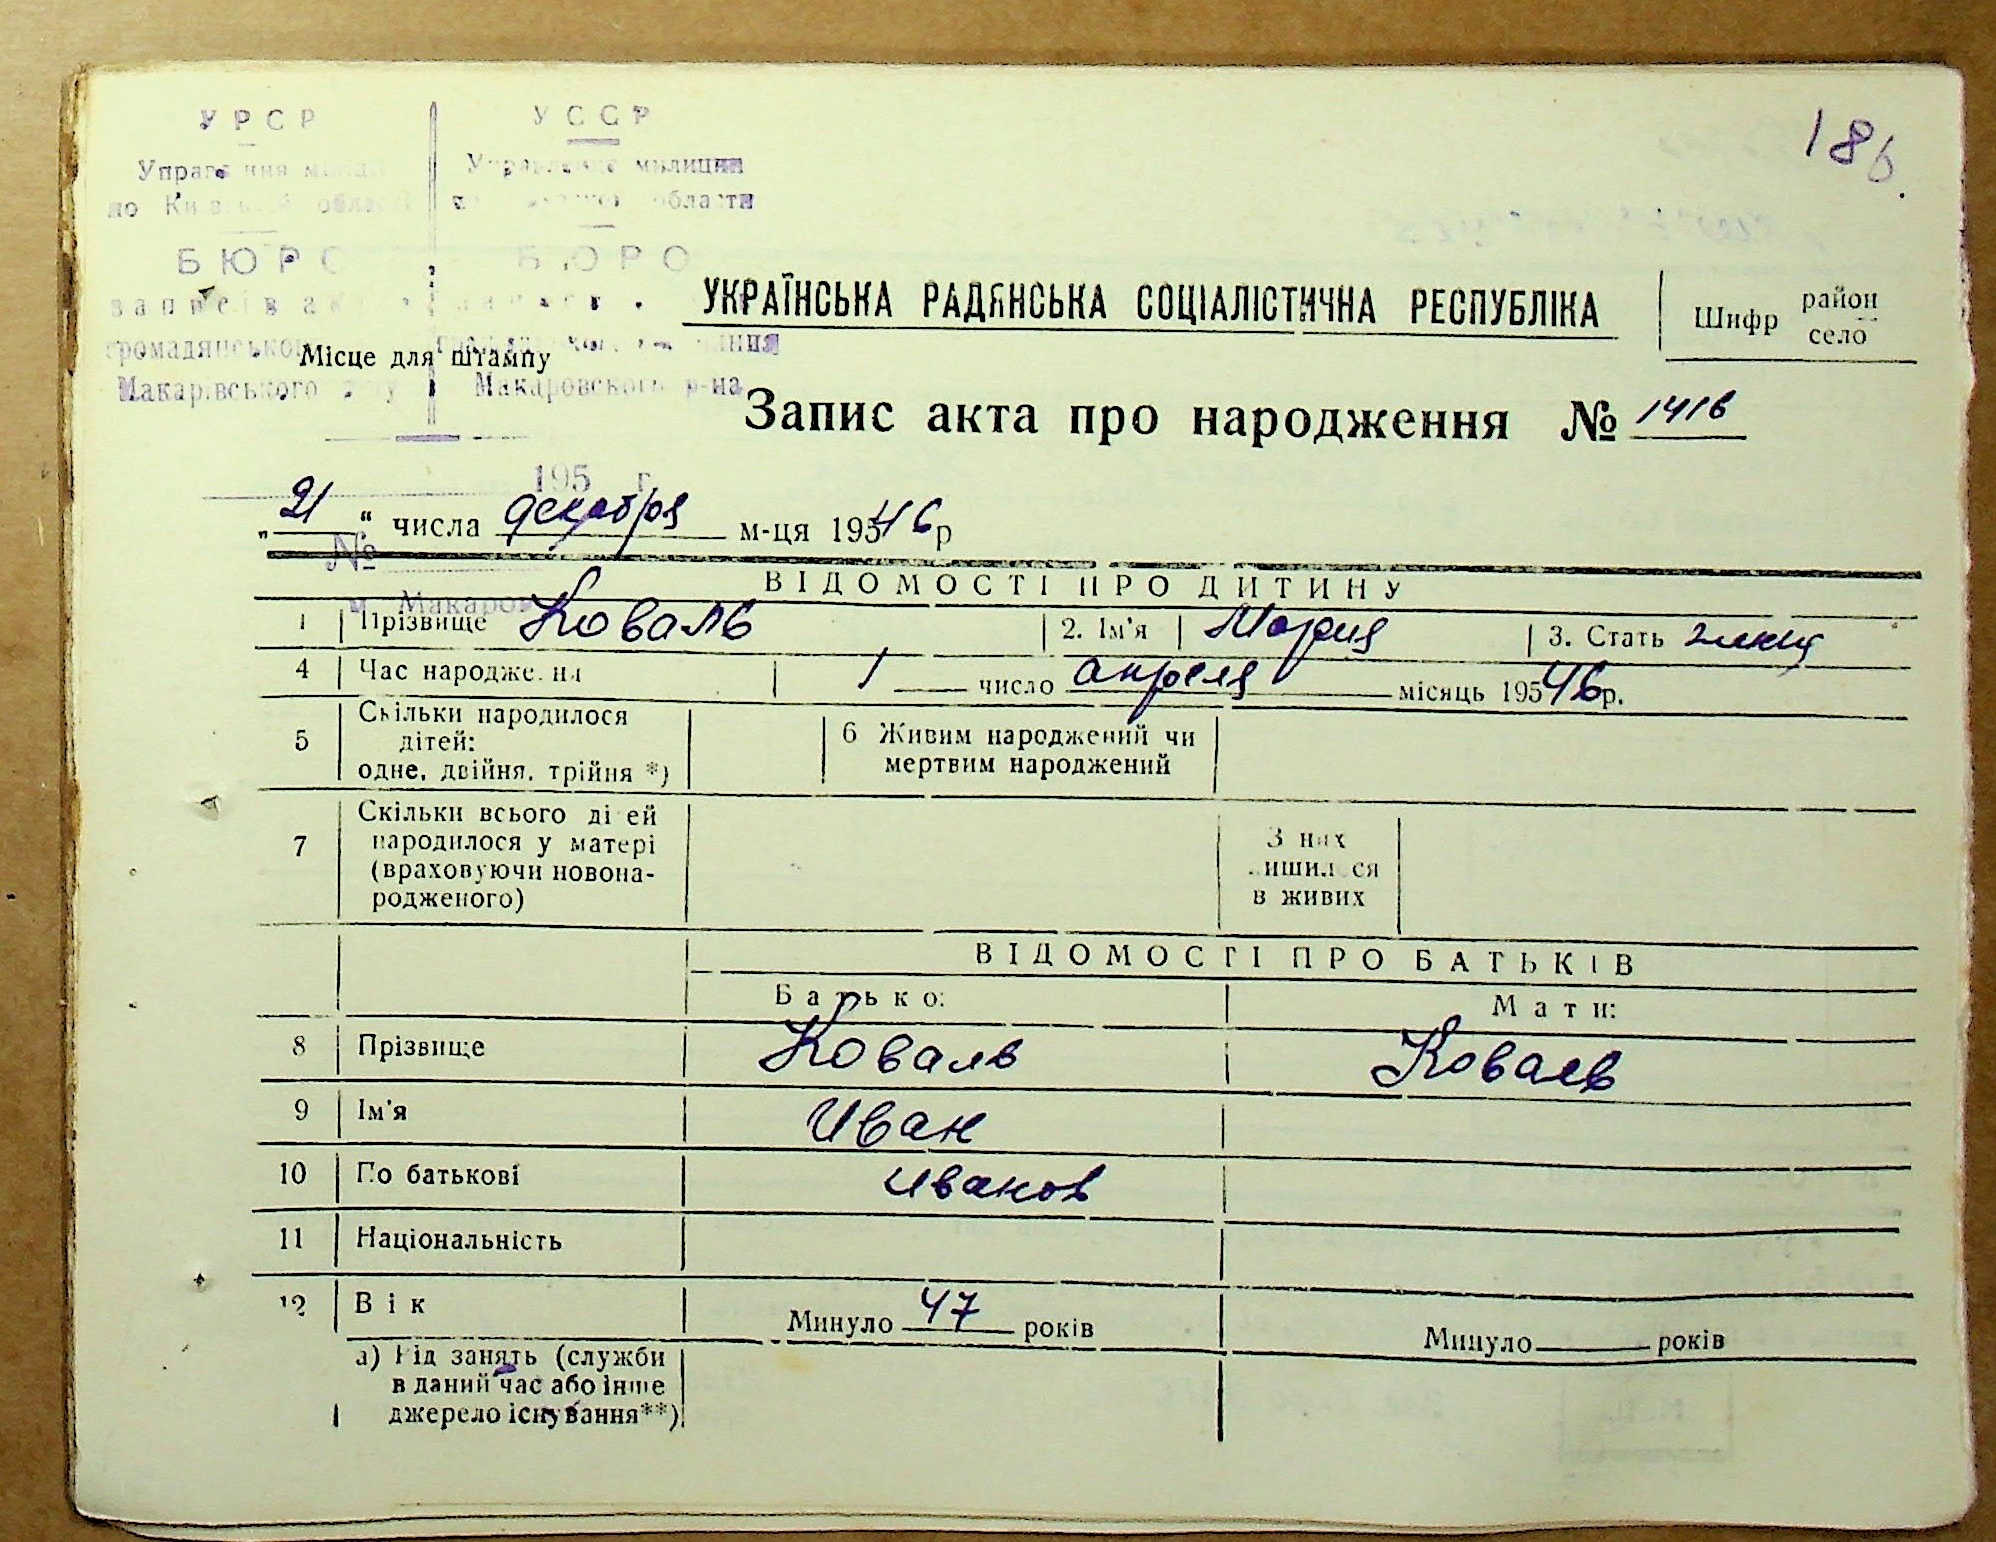 УРСР
УССР
милиции
по
области
БЮРО
БЮРО
записів
Макарівського
Макаровского р-на
186.
УКРАЇНСЬКА РАДЯНСЬКА СОЦІАЛІСТИЧНА РЕСПУБЛІКА
Шифр район
село
Місце для штампу
Запис акта про народження № 1416
195 г.
„21“ числа декабря м-ця 195 46 р
№
м. Макаров
ВІДОМОСТІ ПРО ДИТИНУ
1 Прізвище Коваль 2. Ім'я Мария 3. Стать
4 Час народження 1 число апреля місяць 195 46 р.
5 Скільки народилося
дітей:
одне, двійня, трійня *)
6 Живим народжений чи
мертвим народжений
7 Скільки всього дітей
народилося у матері
(враховуючи новона-
родженого)
З них
лишилося
в живих
ВІДОМОСТІ ПРО БАТЬКІВ
Батько: Мати:
8 Прізвище Коваль Коваль
9 Ім'я Иван
10 По батькові Иванов
11 Національність
12 Вік Минуло 47 років Минуло років
а) Рід занять (служби
в даний час або інше
джерело існування**)